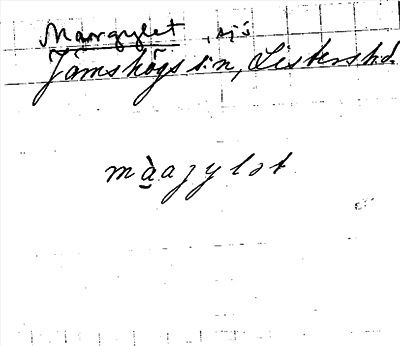 Margylet, sjö
Jämshögs s:n, Listers hd.
màagylət